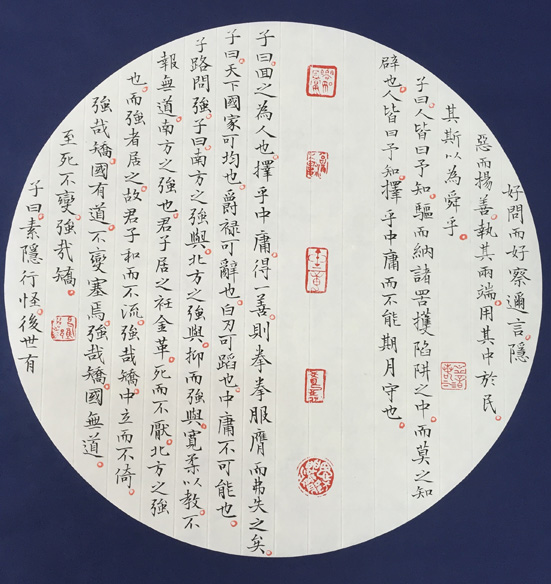 好問而好察邇言隱
惡而揚善執其兩端用其中於民
其斯以為舜乎
子曰人皆曰予知驅而納諸罟擭陷阱之中而莫之知
辟也人皆曰予知擇乎中庸而不能期月守也
子曰回之為人也擇乎中庸得一善則拳拳服膺而弗失之矣
子曰天下國家可均也爵禄可辭也白刃可蹈也中庸不可能也
子路問強子曰南方之強與北方之強與抑而強與寬柔以教不
報無道南方之強也君子居之衽金革死而不厭北方之強
也而強者居之故君子和而不流強哉矯中立而不倚
強哉矯國有道不變塞焉強哉矯國無道
至死不變強哉矯
子曰素隱行怪後世有